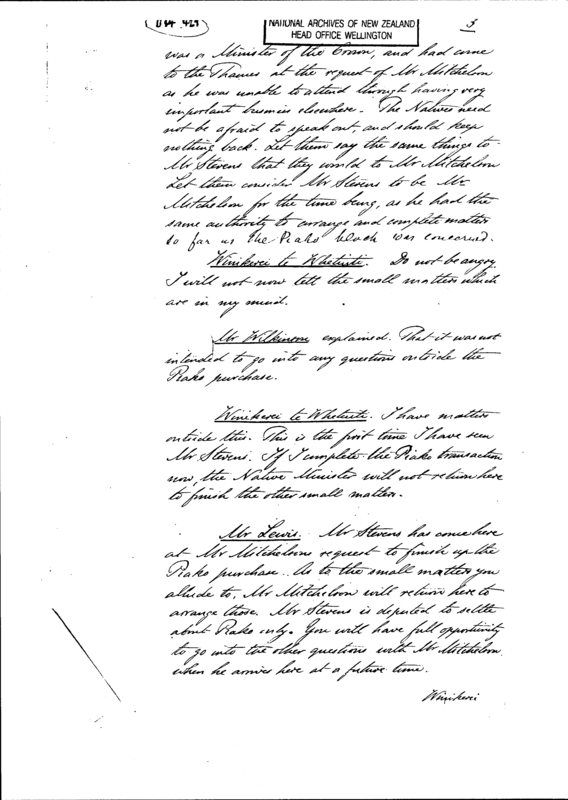 NATIONAL ARCHIVES OF NEW ZEALAND
HEAD OFFICE WELLINGTON
was a Minister of the Crown, and had come
to the Thames at the request of Mr Mitchelson
as he was unable to attend through having very
important business elsewhere. The Natives need
not be afraid to speak out, and should keep
nothing back. Let them say the same things to
Mr Stevens that they would to Mr Mitchelson
Let them consider Mr Stevens to be Mr
Mitchelson for the time being, as he had the
same authority to arrange and complete matters
so far as the Piako block was concerned.
Winikerei to Whetuiti. Do not be angry
I will not now tell the small matters which
are in my mind.
Mr Wilkinson explained. That it was not
intended to go into any questions outside the
Piako purchase.
Winikerei to Whetuiti. I have matters
outside this. This is the first time I have seen
Mr Stevens. If I complete the Piako transaction
now, the Native Minister will not return here
to finish the other small matters.
Mr Lewis. Mr Stevens has come here
at Mr Mitchelsons request to finish up the
Piako purchase. As to the small matters you
allude to, Mr Mitchelson will return here to
arrange those. Mr Stevens is deputed to settle
about Piako only. You will have full opportunity
to go into the other questions with Mr Mitchelson
when he arrives here at a future time.
Winikerei